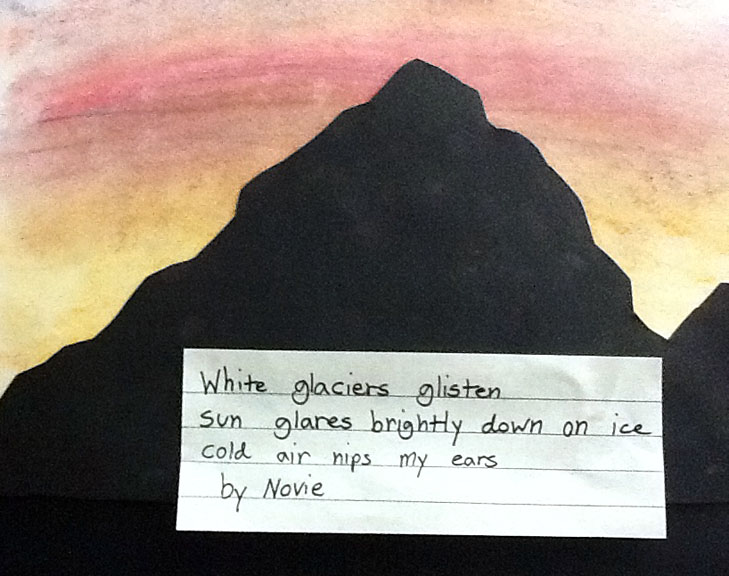 White glaciers glisten
sun glares brightly down on ice
cold air nips my ears
by Novie